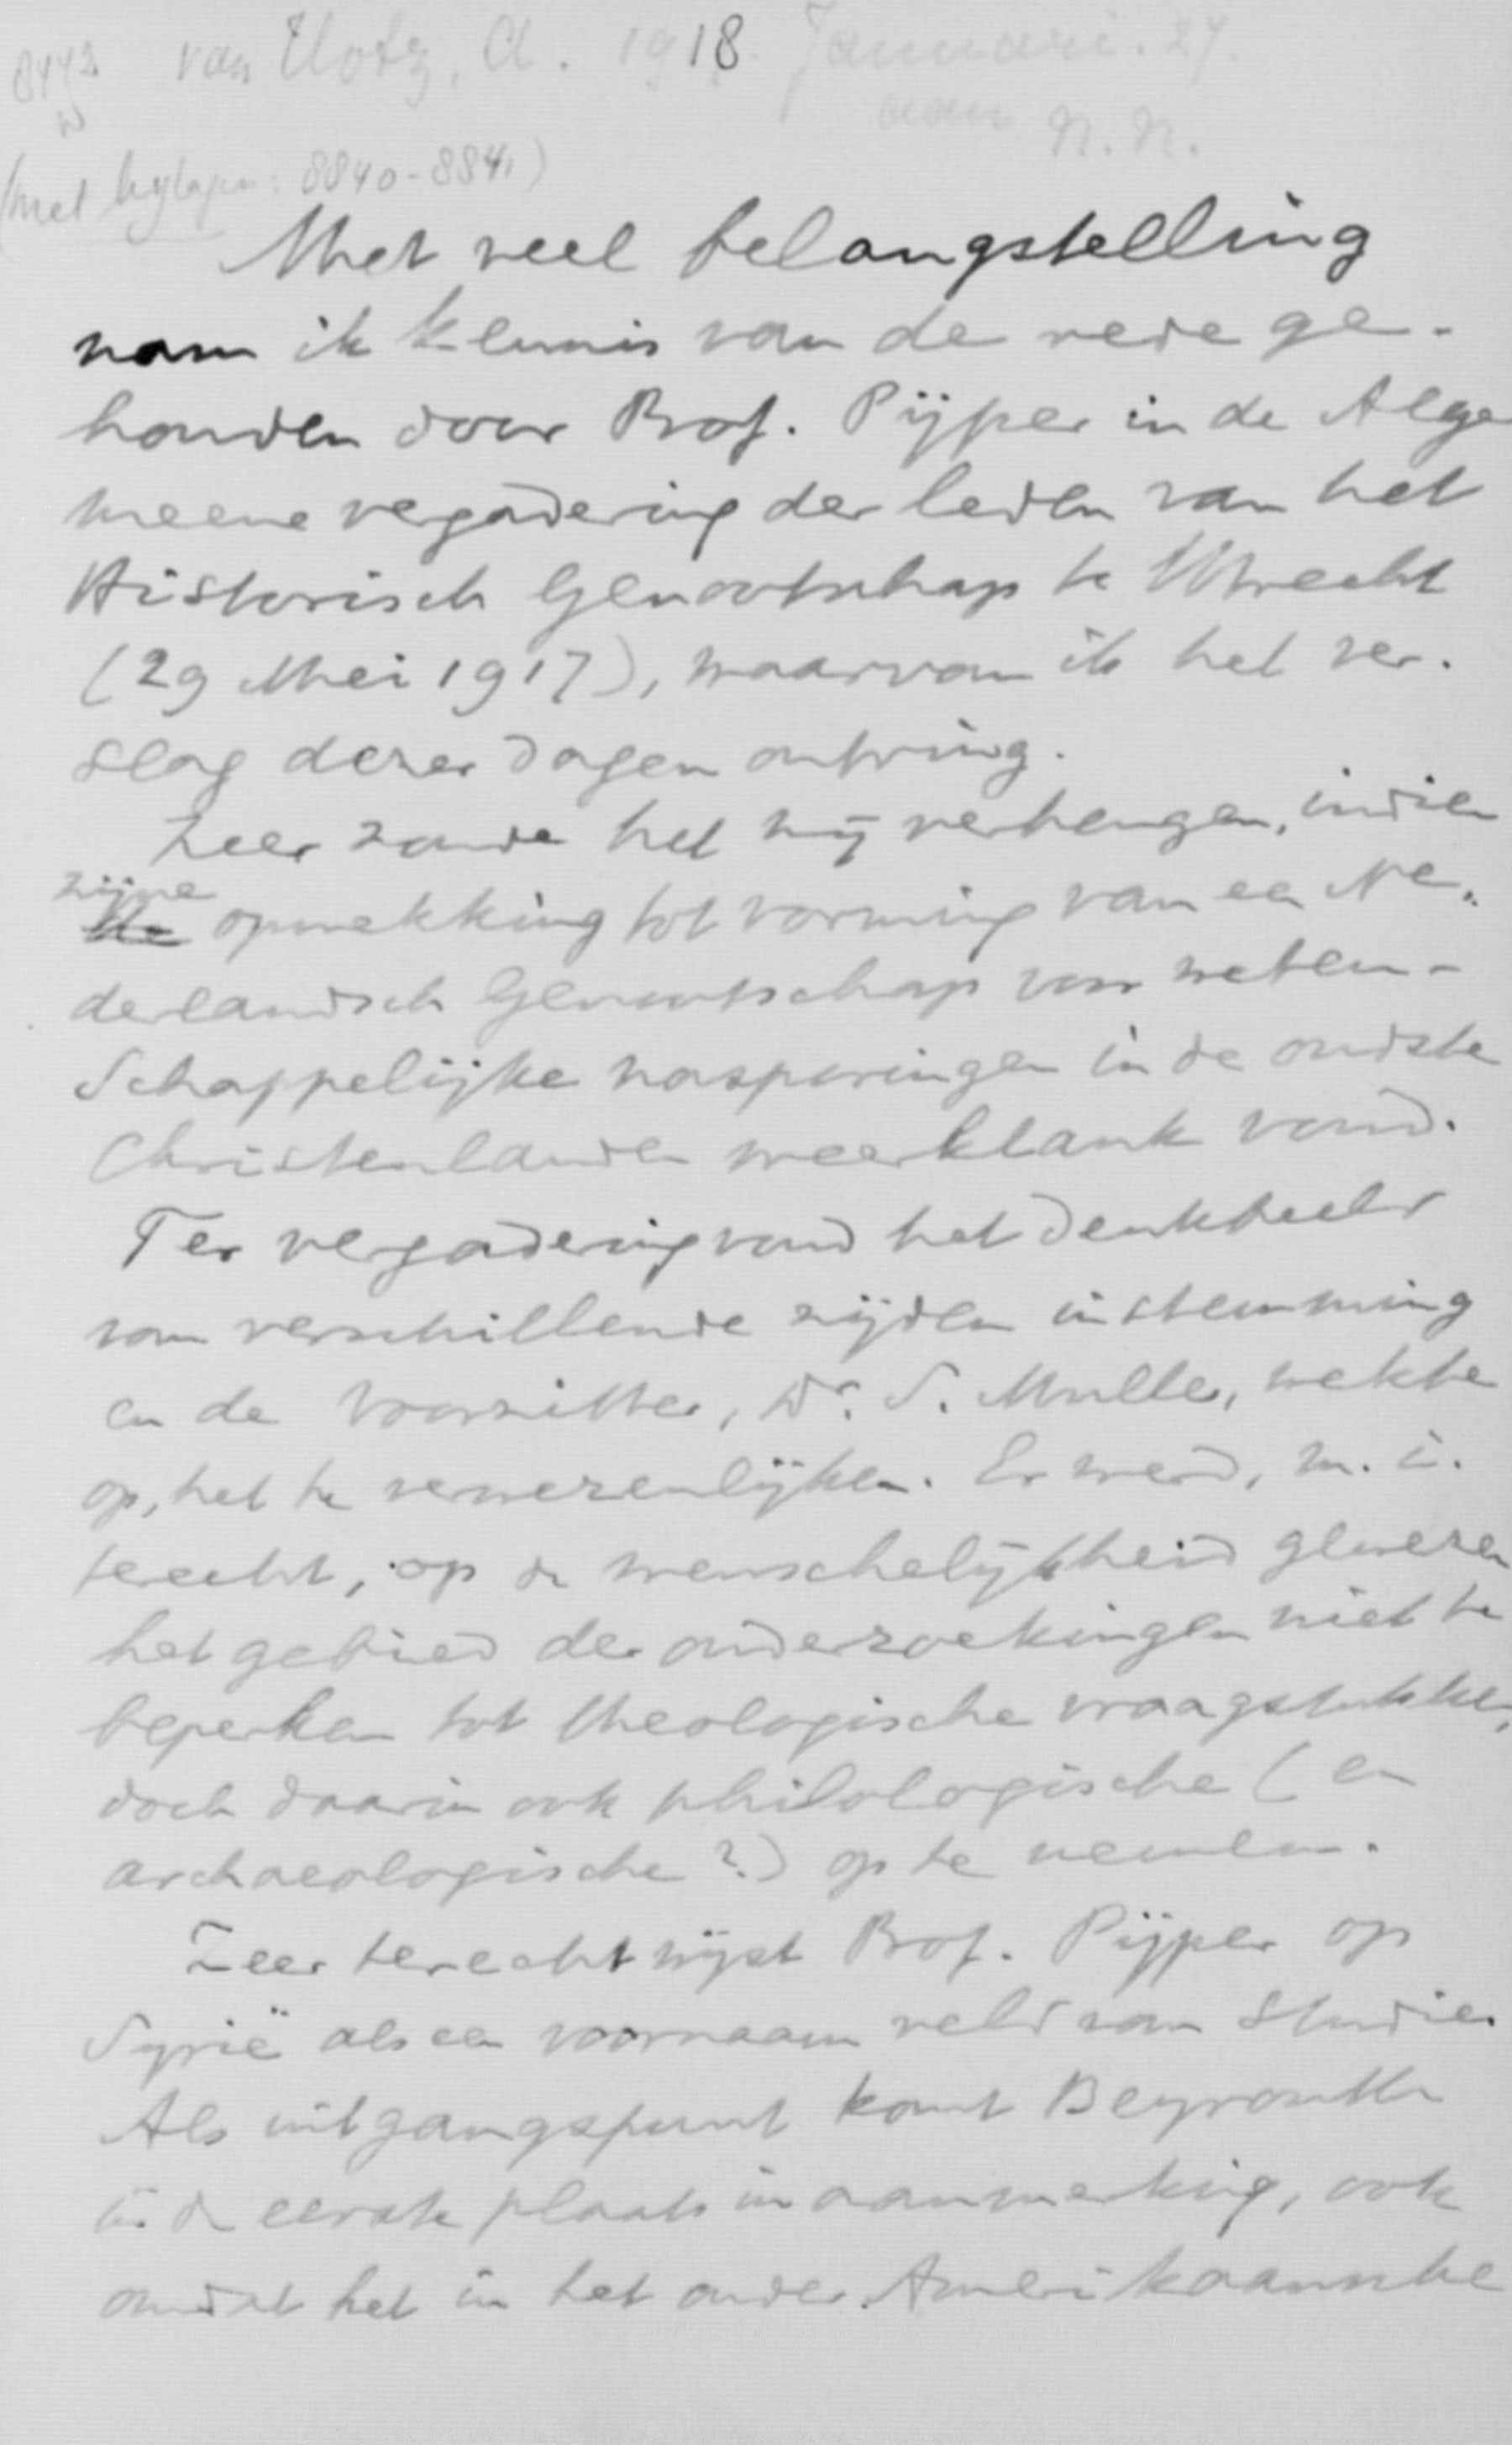 8442 van Hotz, A. 1918. Januari. 27.
W aan N.N.
(met bylagen: 8840-8841)
Met veel belangstelling
nam ik kennis van de rede ge-
houden door Prof. Pijper in de Alge
meene vergadering der leden van het
Historisch Genootschap te Utrecht
(29 Mei 1917), waarvan ik het ver-
slag dezer dagen ontving.
Zeer zoude het mij verheugen, indien
zijne
de opwekking tot vorming van een Ne-
derlandsch Genootschap voor weten-
schappelijke nasporingen in de oudste
Christenlanden weerklank vond.
Ter vergadering vond het denkbeeld
van verschillende zijden instemming
en de Voorzitter, Dr. S. Muller, wekte
op, het te verwezenlijken. Er werd, m. i.
terecht, op de wenschelijkheid gewezen
het gebied der onderzoekingen niet te
beperken tot theologische vraagstukken,
doch daarin ook philologische (en
archaeologische?) op te nemen.
Zeer terecht wijst Prof. Pijper op
Syrië als een voornaam veld van studie.
Als uitgangspunt komt Beyrouth
in de eerste plaats in aanmerking, ook
omdat het in het onder Amerikaansche